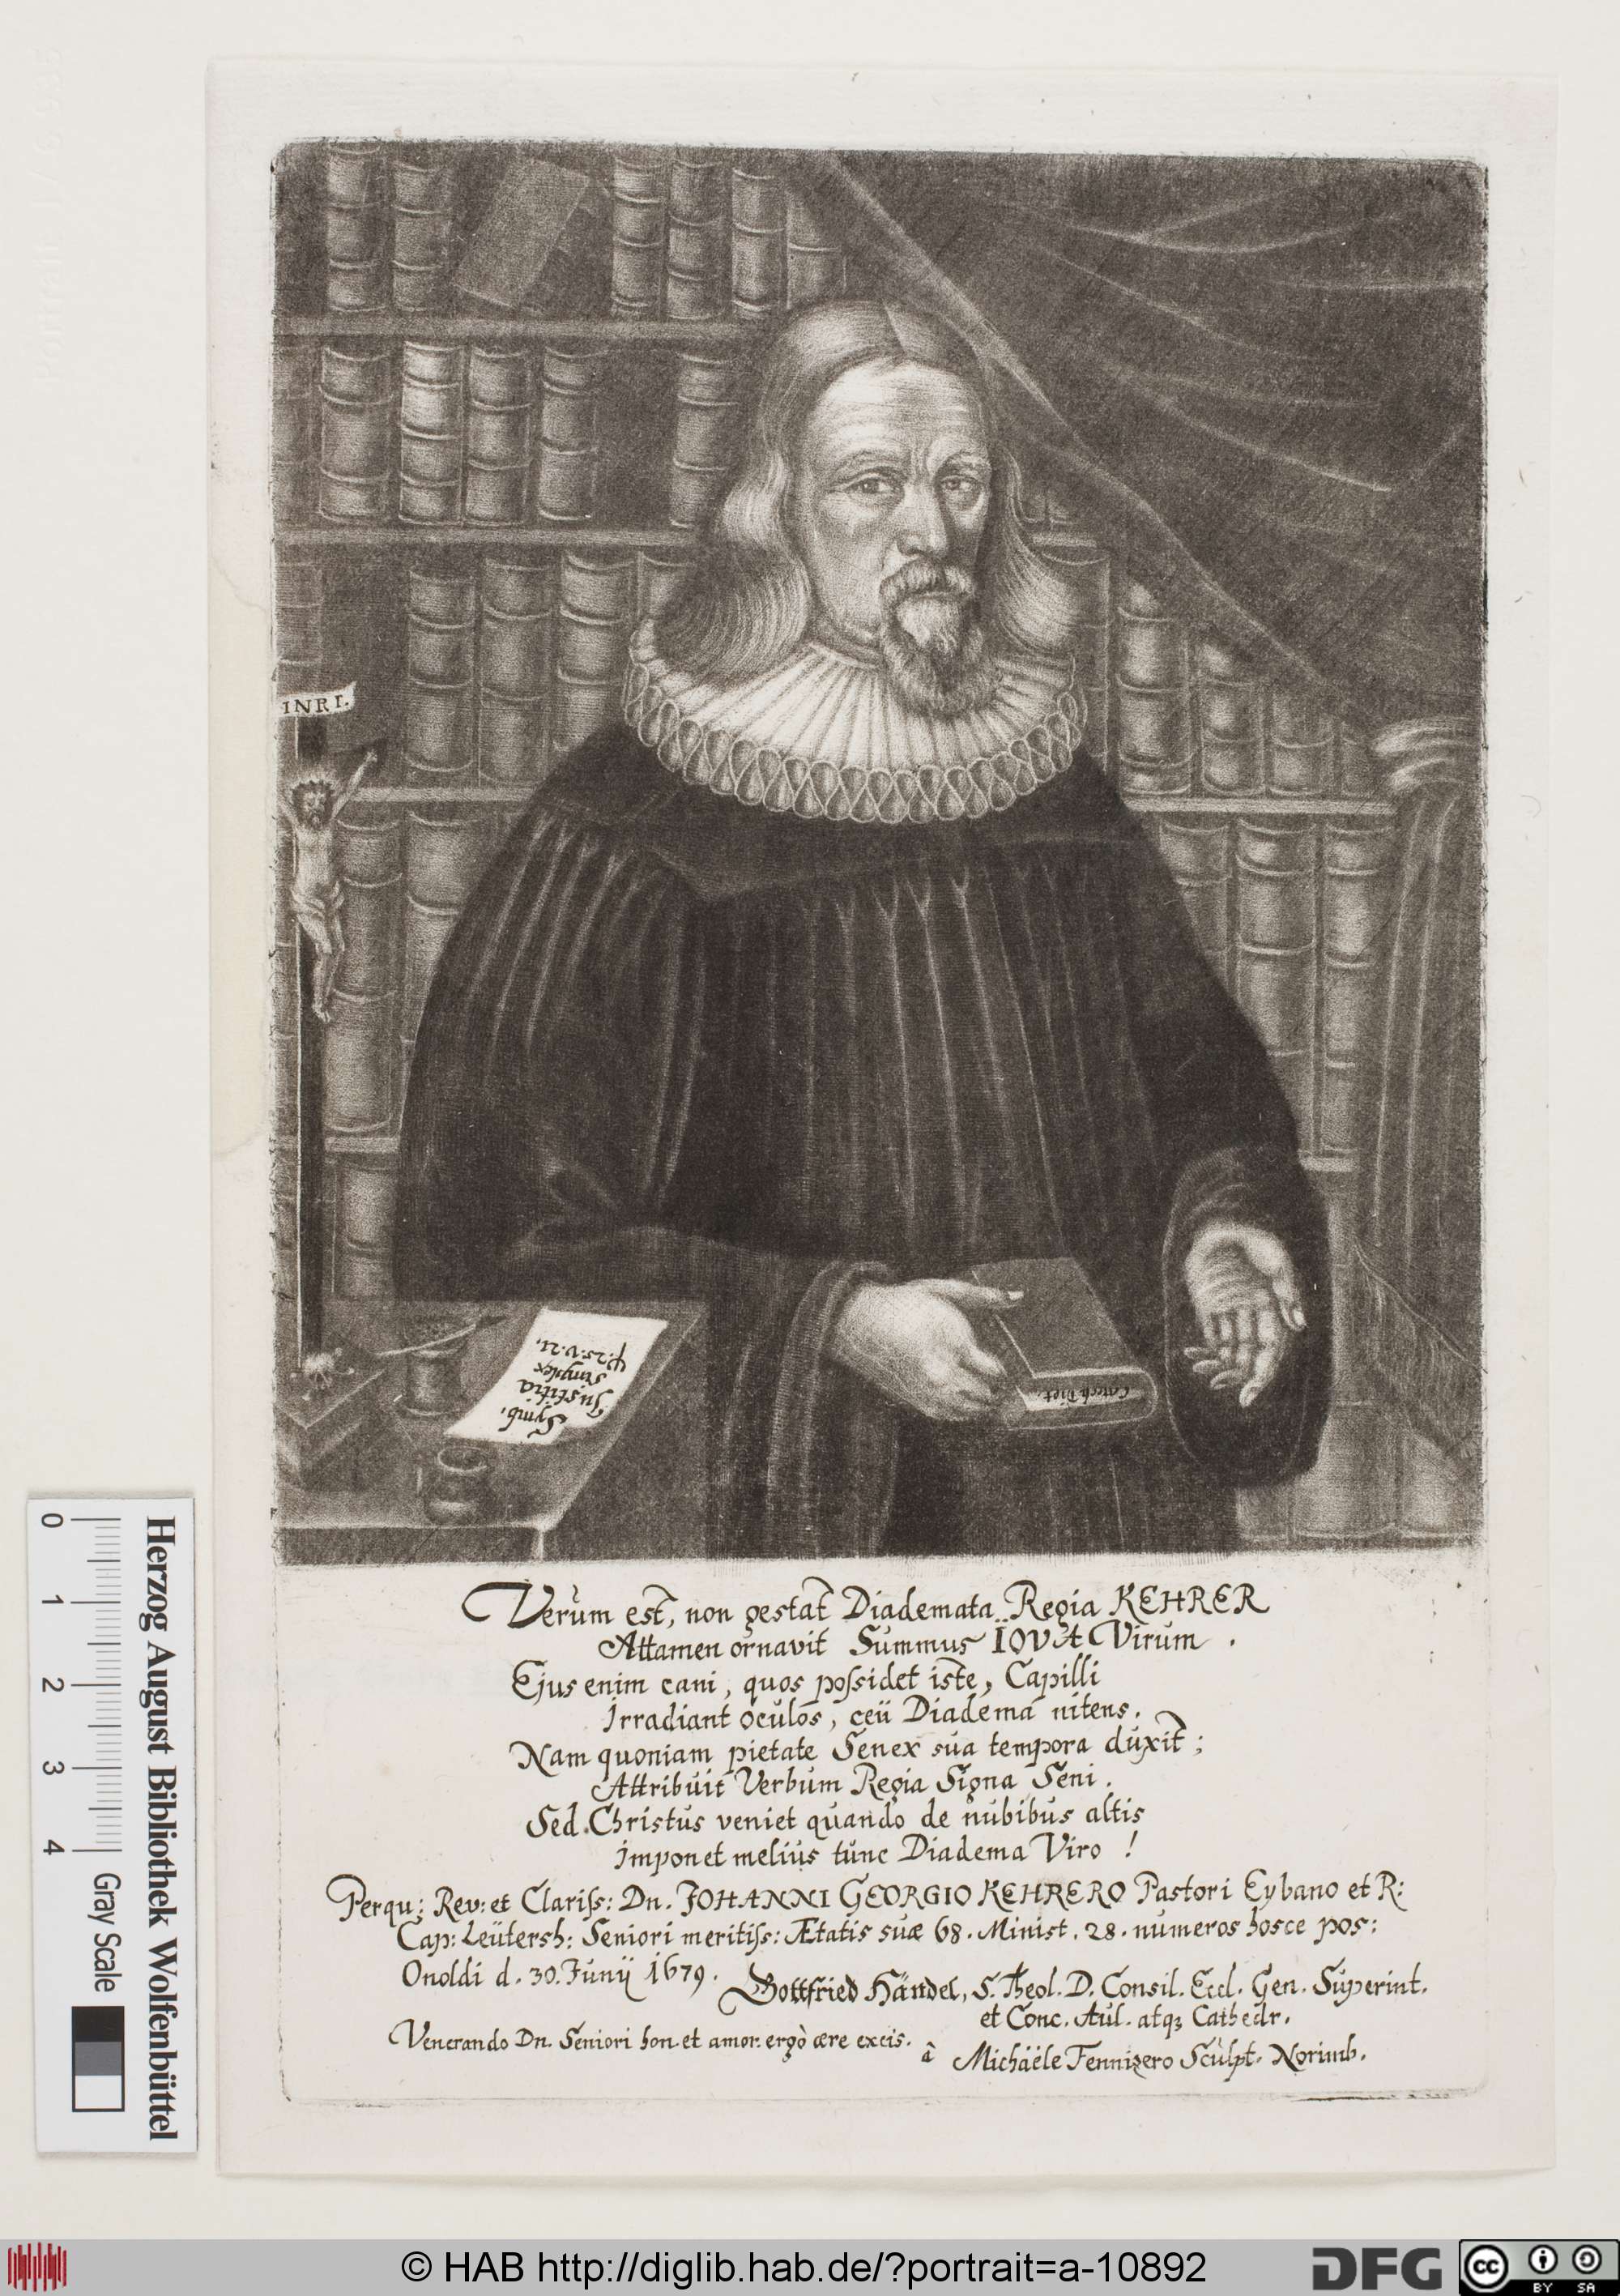 INRI.
Symb.
Justitia
simplex
ψ. 25. V. 21.
Catech Diet.
Verùm est, non gestat Diademata Regia KEHRER
Attamen ornavit Summus IOVA Virum.
Ejus enim cani, quos poſsidet iste, Capilli
Irradiant oculos, ceü Diadema nitens.
Nam quoniam pietate Senex sua tempora duxit;
Attribuit Verbum Regia Signa Seni.
Sed Christus veniet quando de nubibus altis
Imponet meliùs tùnc Diadema Viro!
Perqu: Rev: et Clariſs: Dn. JOHANNI GEORGIO KEHRERO Pastori Eybano et R:
Cap: Leütersh: Seniori meritiſs: Ætatis suæ 68. Minist. 28. numeros hosce pos:
Onoldi d. 30. Junij 1679. Gottfried Händel, S. Theol. D. Consil. Eccl. Gen. Superint.
et Conc. Aul. atq₃ Cathedr.
Venerando Dn. Seniori hon et amor. ergò ære excis.
â Michäéle Fennizero Sculpt. Norimb.
0 1 2 3 4
Herzog August Bibliothek Wolfenbüttel
Gray Scale
© HAB http://diglib.hab.de/?portrait=a-10892
DFG
cc BY SA